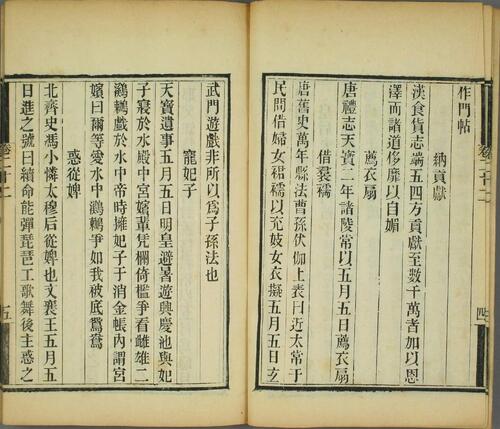 作門帖
納貢獻
漢食貨志端五四方貢獻至數千萬者加以恩
澤而諸道侈靡以自媚
薦衣扇
唐禮志天寶二年諸陵常以五月五日薦衣扇
借裠襦
唐舊史萬年縣法曹孫伏伽上表曰近太常于
民間借婦女裙襦以充妓女衣擬五月五日玄
四
武門遊戲非所以為子孫法也
寵妃子
天寶遺事五月五日明皇避暑遊興慶池與妃
子寢於水殿中宮嬪輩凭欄倚檻爭看雌雄二
鸂鶒戲於水中帝時擁妃子于消金帳內謂宮
嬪曰爾等愛水中鸂鶒爭如我被底鴛鴦
惑從婢
北齊史馮小憐大穆后從婢也文襄王五月五
日進之號曰續命能彈琵琶工歌舞後主惑之
五